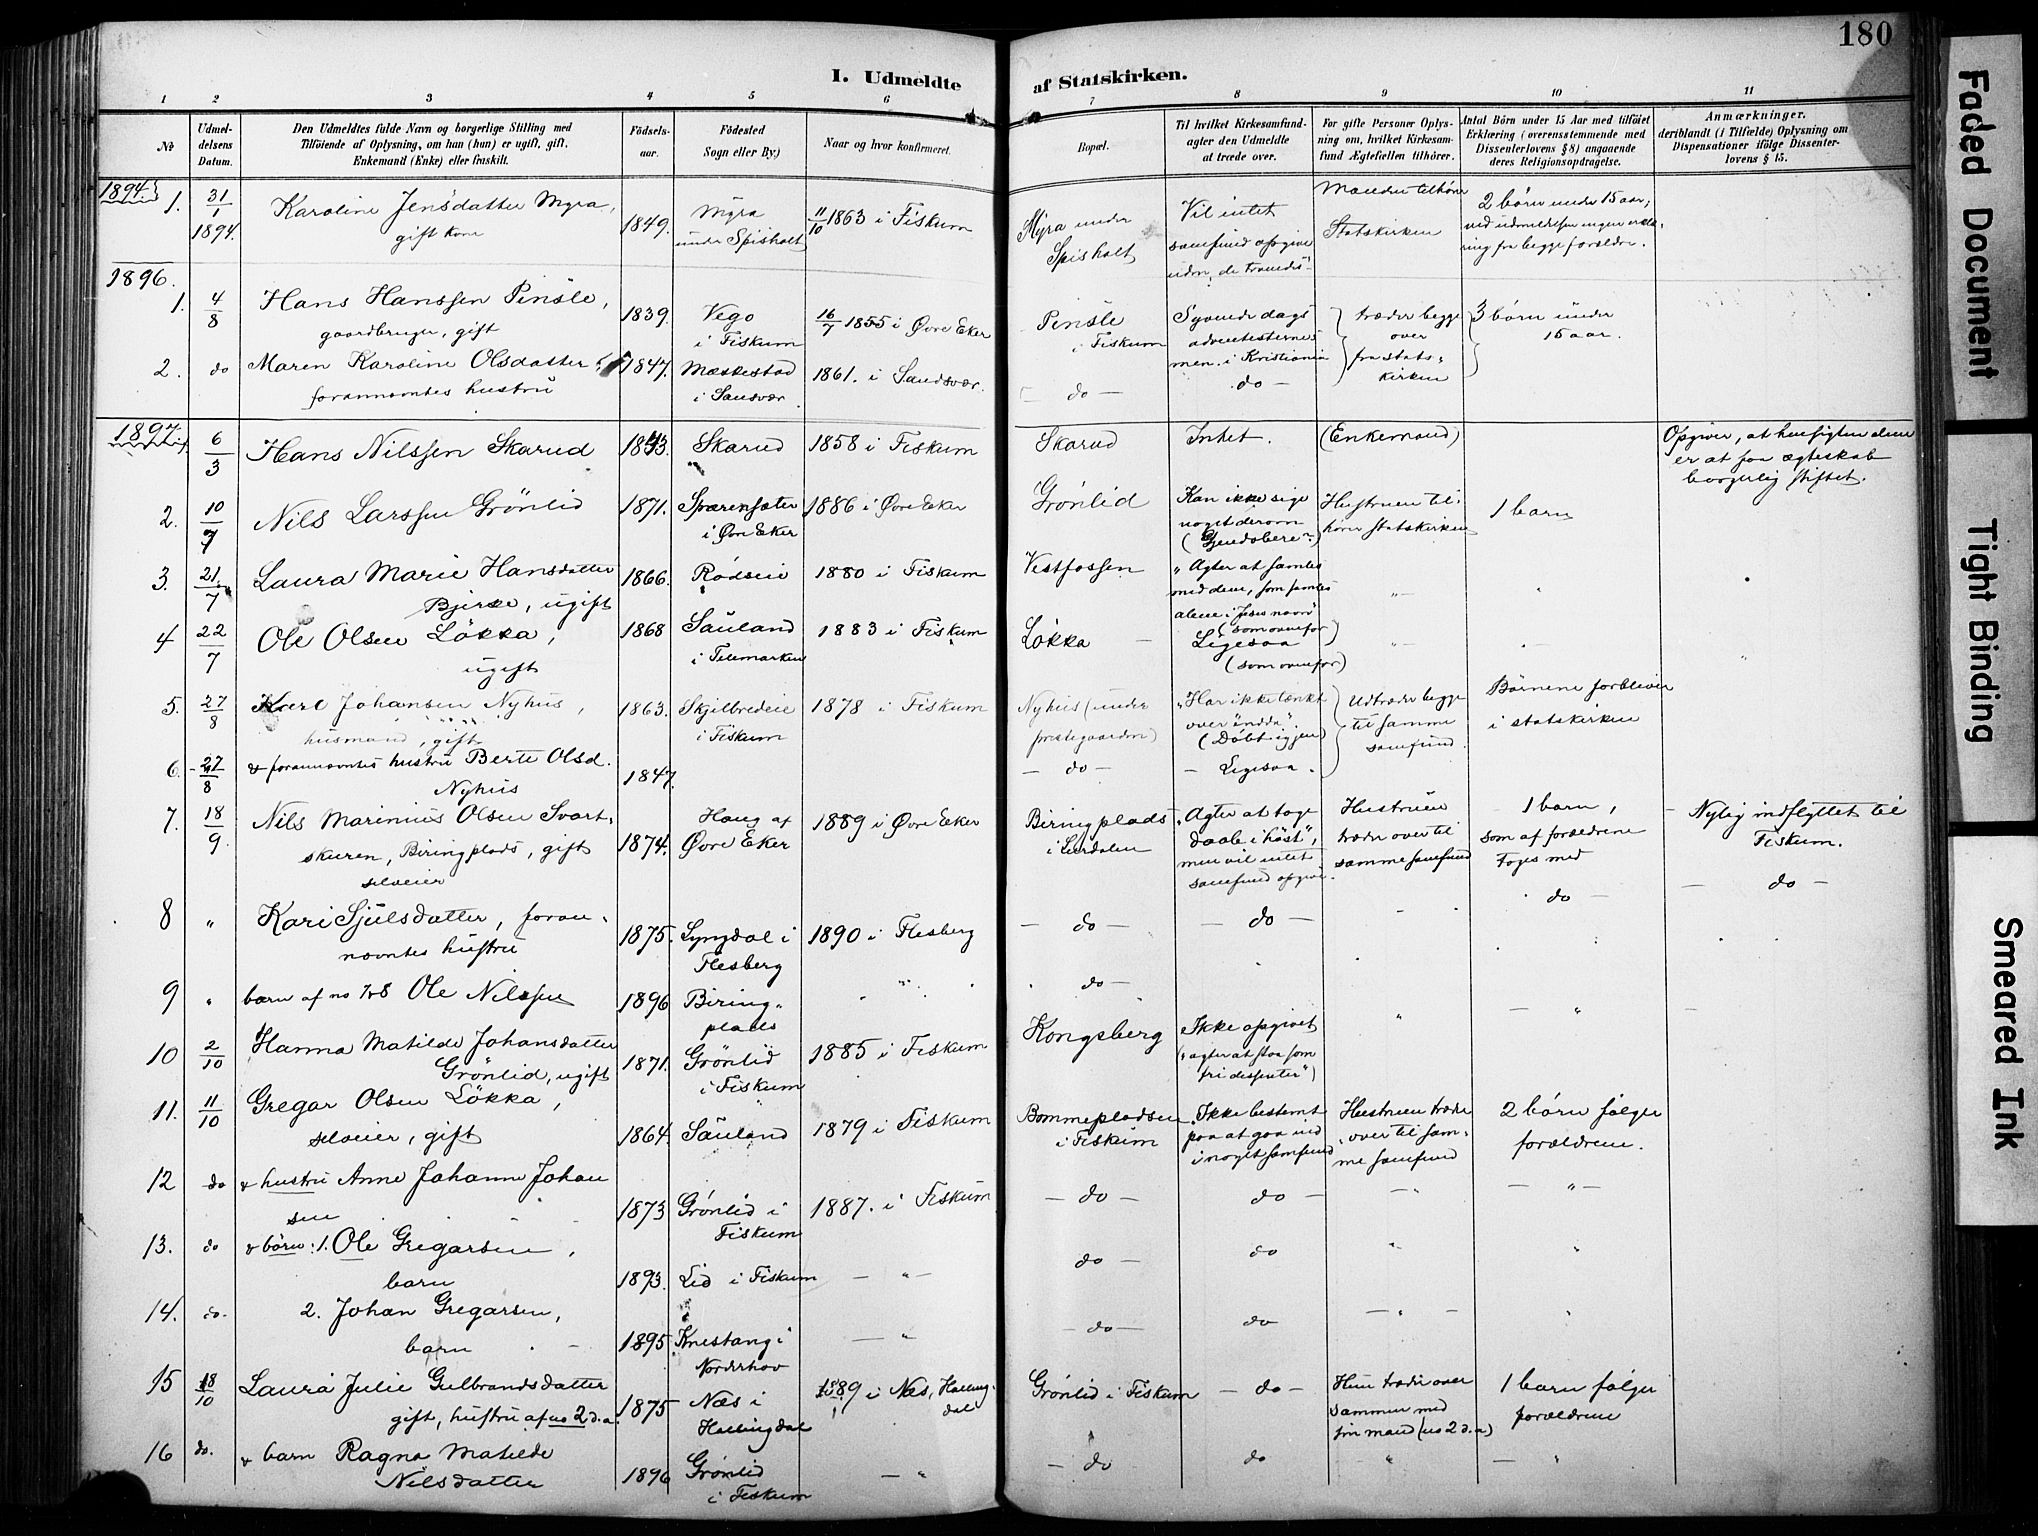 180
I. Udmeldte af Statskirken.
1 2 3 4 5 6 7 8 9 10 11
No
Udmeldelsens Datum.
Den Udmeldtes fulde Navn og borgerlige Stilling med
Tilføiende af Oplysning, om han (hun) er ugift, gift,
Enkemand (Enke) eller fraskilt.
Fødselsaar.
Fødested
Sogn eller By.)
Naar og hvor konfirmeret.
Bopæl.
Til hvilket Kirkesamfund
agter den Udmeldte
at træde over.
For gifte Personer Oplysning om, hvilket Kirkesamfund Ægtefællen tilhører.
Antal Børn under 15 Aar med tilføiet
Erklæring (overensstemmende med
Dissenterlovens § 8) angaaende
deres Religionsopdragelse.
Anmærkninger,
deriblandt (i Tilfælde) Oplysning om
Dispensationer ifølge Dissenterlovens § 15.
1894
1. 31/1 1894. Karoline Jensdatter Myra, gift kone 1849. Myra under Spisholt 11/10 1863 i Fiskum
Myra under Spisholt Vil intet samfund opgive Manden tilhører Statskirken 2 børn under 15 aar;
1896.
1. 4/8 Hans Hanssen Pinsle, gaardbruger, gift 1839. Vego i Fiskum 16/7 1855 i Øvre Eker
Pinsle i Fiskum Syvende dags adventisternes men. i Kristiania træder begge over fra statskirken 3 børn under 15 aar.
2. do Maren Karoline Olsdatter, forannævntes hustru 1847. Mæskestad i Sandsvær 1861. i Sandsvær.
do do
1897
1. 6/3 Hans Nilssen Skarud 1843. Skarud 1858 i Fiskum
Skarud Intet. (Enkemand) Opgiver, at hensigten dermed er at faa ægteskab borgerlig stiftet.
2. 10/7 Nils Larssen Grönlid 1871. Sparensæter i Øvre Eker 1886 i Øvre Eker
Grönlid Kan ikke sige noget derom (Gjendøbere?) Hustruen tilhører statskirken 1 barn
3. 21/7 Laura Marie Hansdatter Bjerke, ugift 1866. Rödseie 1880 i Fiskum
Vestfossen "Agter at samles med dem, som samles alene i Jesu navn"
4 22/7 Ole Olsen Løkka, ugift 1868 Sauland i Telemarken 1883 i Fiskum
Løkka Ligesaa (som ovenfor)
5. 27/8 Johansen Nyhus, husmand, gift 1863. Skjelbredeie i Fiskum 1878 i Fiskum
Nyhus (under præstegaarden) "Har ikke tænkt over endda". (Døbt igjen) Udtræder begge til samme samfund. Børnene forbliver i statskirken
6. 27/8 & forannævntes hustru Berte Olsd. Nyhus 1847.
do Ligesaa.
7. 18/9. Nils Marinius Olsen Svartskuren, Biringplads, gift selveier 1874. Haug af Øvre Eker 1889 i Øvre Eker
Biringplads i Lurdalen "Agter at tage daab i høst", men vil intet samfund opgive. Hustruen træder over til samme samfund 1 barn, som af forældrene tages med Nylig indflyttet til Fiskum.
8 " Kari Sjulsdatter, forannævntes hustru 1875. Lyngdal i Flesberg 1890 i Flesberg
do do do do
9 " barn af no 7&8 Ole Nilssen 1896 Biringplads "
do " "
10 2/10 Hanna Matilde Johansdatter Grönlid, ugift 1871. Grönlid i Fiskum 1885 i Fiskum
Kongsberg Ikke opgivet ("agter at staa som fri dissenter")
11. 11/10 Gregar Olsen Løkka, selveier, gift 1864. Sauland 1879 i Fiskum
Bommepladsen i Fiskum Ikke bestemt paa at gaa ind i noget samfund Hustruen træder over til samme samfund 2 børn følger forældrene.
12 do & hustru Anne Johanne Johansen 1873 Grönlid i Fiskum 1887. i Fiskum
do do "
13. do & börn: 1. Ole Gregarsen, barn 1893. Lid i Fiskum "
do do " "
14. do. 2. Johan Gregarsen, barn 1895. Knestang i Norderhov "
do do " "
15 18/10 Laura Julie Gulbrandsdatter gift, hustru af no 2 d.a. 1875 Næs i Hallingdal 1889 i Næs, Hallingdal
Grönlid i Fiskum do Hun træder over sammen med sin mand (no 2 d.a) 1 barn følger forældrene
16 do. & barn Ragna Matilde Nilsdatter 1896 Grönlid i Fiskum "
do do " "
Faded Document
Tight Binding
Smeared Ink